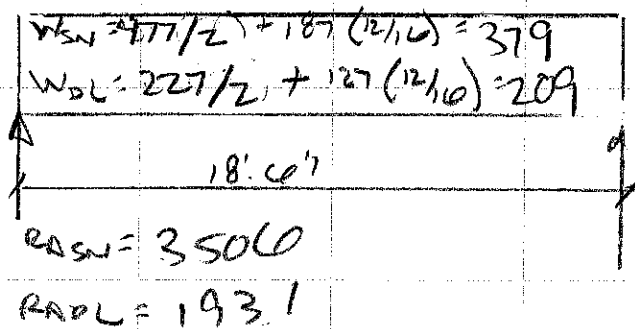 WSN = 477/2 + 187 (12/16) = 379
WDL = 227/2 + 127 (12/16) = 209
18'-6"
RASN = 3506
RADL = 1931